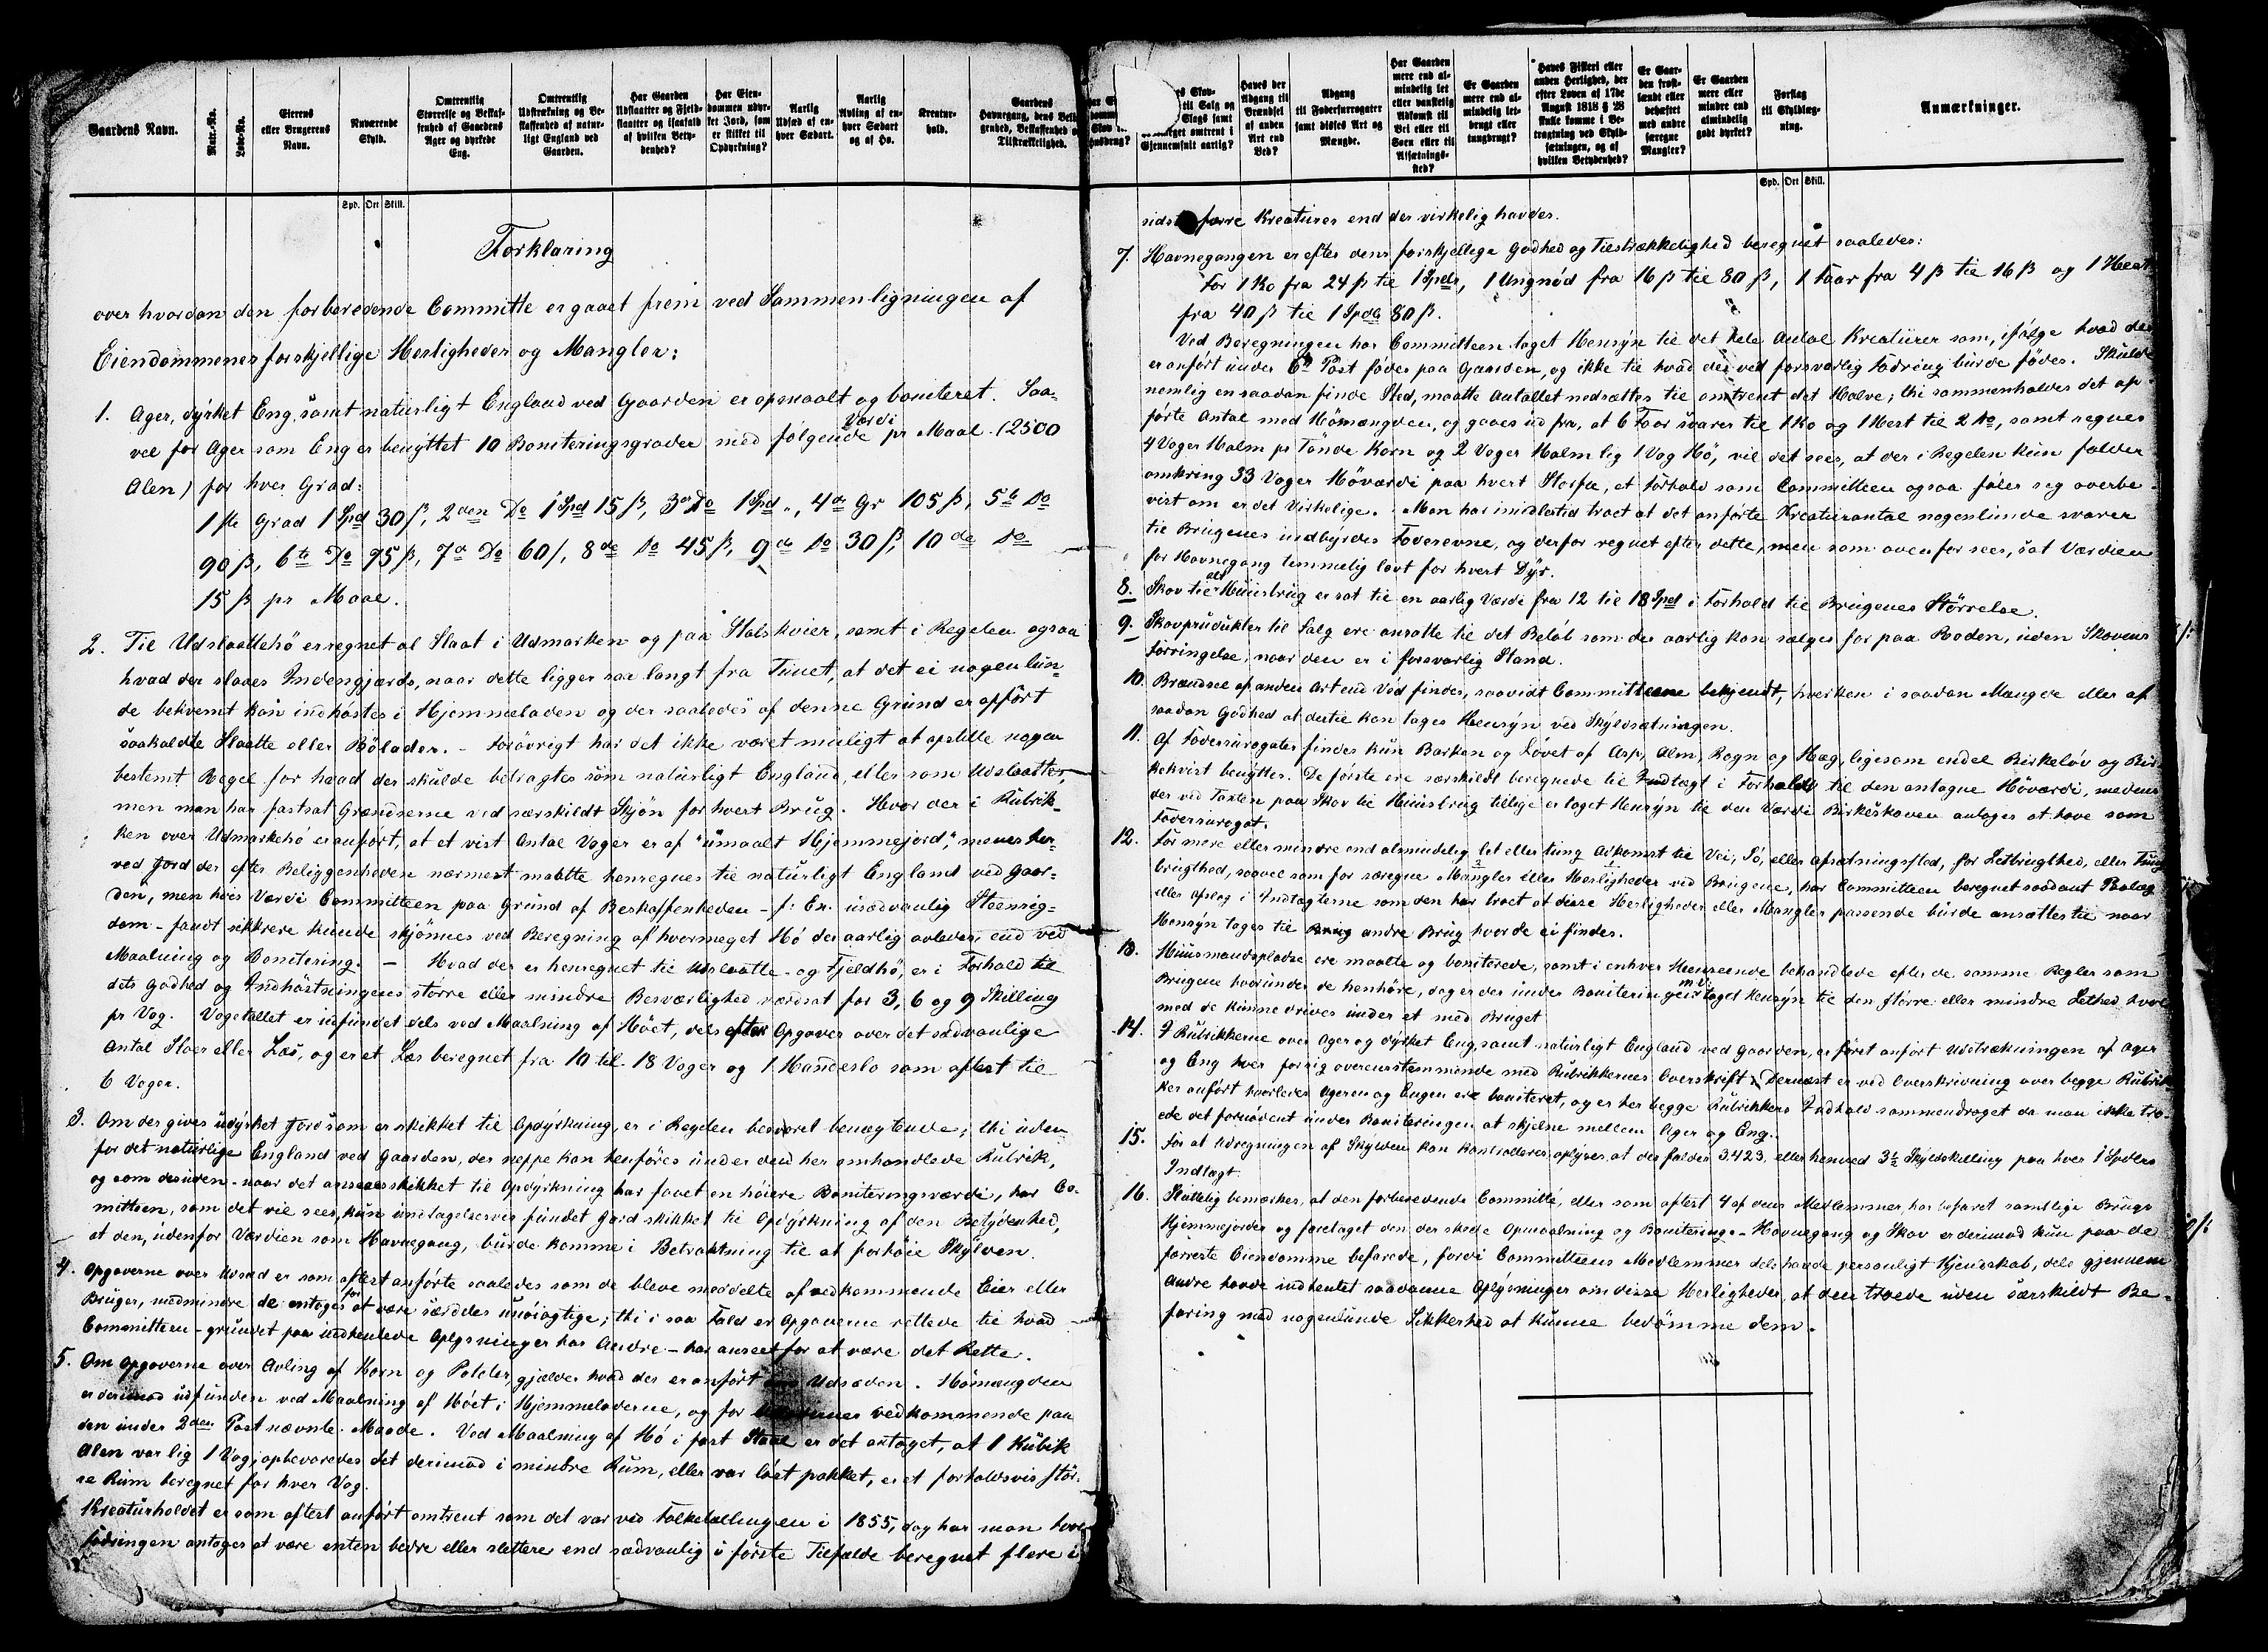 Gaardens Navn.
Matr.-No.
Løbe-No.
Eierens
eller Brugerens
Navn.
Nuværende
Skyld.
Omtrentlig
Størrelse og Beskaf-
fenhed af Gaardens
Ager og dyrkede
Eng.
Omtrentlig
Udstrækning og Be-
skaffenhed af natur-
ligt England ved
Gaarden.
Har Gaarden
Udslaatter og Fjeld-
slaatter og isaafald
af hvilken Bety-
denhed?
Har Eien-
dommen udyr-
ket Jord, som
er skikket til
Opdyrkning?
Aarlig
Udsæd af en-
hver Sædart.
Aarlig
Avling af en-
hver Sædart
og af Hø.
Kreatur-
hold.
Gaardens
Havnegang, dens Belig-
genhed, Beskaffenhed og
Tilstrækkelighed.
til Salg og
Slags samt
omtrent i
Gjennemsnit aarlig?
Haves der
Adgang til
Brændsel
af anden
Art end
Ved?
Adgang
til Fodersurrogater
samt disses Art og
Mængde.
Har Gaarden
mere end al-
mindelig let
eller vanskelig
Adkomst til
Vei eller til
Søen eller til
Afsætnings-
sted?
Er Gaarden
mere end al-
mindelig let-
brugt eller
tungbrugt?
Haves Fiskeri eller
anden Herlighed, der
efter Loven af 17de
August 1818 § 28
skulle komme i Be-
tragtning ved Skyld-
sætningen, og af
hvilken Betydenhed?
Er Gaar-
den frost-
lændt eller
behæftet
med andre
særegne
Mangler?
Er Gaarden
mere eller
mindre end
almindelig
godt dyrket?
Forslag
til Skyldlæg-
ning.
Anmærkninger.
Spd. Ort Skill.
Spd. Ort Skill.
Forklaring
over hvordan den forberedende Committe er gaaet frem ved Sammenligningen af
Eiendommenes forskjellige Herligheder og Mangler:
1. Ager, dyrket Eng samt naturligt England ved Gaarden er opmaalt og boniteret. Saa-
vel for Ager som Eng er benyttet 10 Boniteringsgrader med følgende Værdi pr Maal (2500
Alen) for hver Grad:
1ste Grad 1 Spd 30 β, 2den Do 1 Spd 15 β, 3die Do 1 Spd „, 4de Gr 105 β, 5te Do
90 β, 6te Do 75 β, 7de Do 60 β, 8de Do 45 β, 9de Do 30 β, 10de Do
15 β pr Maal.
2. Til Udslaattehø er regnet al Slaat i Udmarken og paa Stølskvier, samt i Regelen ogsaa
hvad der slaaes Indengjærds, naar dette ligger saa langt fra Tunet, at det ei nogenlun-
de bekvemt kan indhøstes i Hjemmeladen og der saaledes af denne Grund er opført
saakaldte Slaatte eller Bölader. – Forøvrigt har det ikke været muligt at opstille nogen
bestemt Regel for hvad der skulde betragtes som naturligt England, eller som Udslaatter
men man har fastsat Grændserne ved særskildt Skjøn for hvert Brug. Hvor der i Rubrik-
ken over Udmarkehø er anført, at et vist Antal Voger er af "umaalt Hjemmejord," menes her-
ved Jord der efter Beliggenheden nærmest maatte henregnes til naturligt England ved Gaar-
den, men hvis Værdi Committeen paa Grund af Beskaffenheden – f: Ex. usædvanlig Steenrig-
dom – fandt sikkrere kunde skjønnes ved Beregning af hvormeget Hø der aarlig avledes, end ved
Maalning og Bonitering. – Hvad der er henregnet til Udslaatte- og Fjeldhø, er i Forhold til
dets Godhed og Indhøstningens større eller mindre Besværlighed værdsat for 3, 6 og 9 Skilling
pr Vog. Vogetallet er udfundet dels ved Maalning af Høet, dels efter Opgaver over det sædvanlige
Antal Staer eller Læs, og er et Læs beregnet fra 10 til 18 Voger og 1 som oftest til
6 Voger.
3. Om der gives udyrket Jord som er skikket til Opdyrkning, er i Regelen besvaret benægtende; thi uden-
for det naturlige England ved Gaarden, der neppe kan henføres under den her omhandlede Rubrik,
og som desuden – naar det ansees skikket til Opdyrkning har faaet en høiere Boniteringsværdi, har Co-
mitteen, som det vil sees, kun undtagelsesvis fundet Jord skikket til Opdyrkning af den Betydenhed,
at den, udenfor Værdien som Havnegang, burde komme i Betraktning til at forhøie Skylden.
4. Opgaverne over Udsæd er som oftest anførte saaledes som de bleve meddelte af vedkommende Eier eller
Bruger, medmindre de antoges for at være særdeles unøiagtige; thi i saa Fald er Opgaverne rettede til hvad
Committeen – grundet paa indhentede Oplysninger hos Andre – har anseet for at være det Rette.
5. Om Opgaverne over Avling af Korn og Poteter, gjælder hvad der er anført Udsæden. Hømængden
er derimod udfunden ved Maalning af Høet i Hjemmeladerne, og for vedkommende paa
den under 2den Post nævnte Maade. Ved Maalning af Hø i fast Staal er det antaget, at 1 Kubik
Alen var lig 1 Vog; opbevaredes det derimod i mindre Rum, eller var løst pakket, er et forholdsvis stør-
re Rum beregnet for hver Vog.
Kreaturholdet er som oftest anført omtrent som det var ved Folketællingen i 1855, dog har man hvor
Fodringen antages at være enten bedre eller slettere end sædvanlig i første Tilfælde beregnet flere i
sidste færre Kreaturer end der virkelig havdes.
7. Havnegangen er efter dens forskjellige Godhed og Tilstrækkelighed beregnet saaledes:
For 1 Ko fra 24 β til 1 Spdlr, 1 Ungnød fra 16 β til 80 β, 1 Faar fra 4 β til 16 β og 1 Hest
fra 40 β til 1 Spdlr 80 β.
Ved Beregningen har Committeen taget Hensyn til det hele Antal Kreaturer som, ifølge hvad der
er anført under 6te Post fødes paa Gaarden, og ikke til hvad der ved forsvarlig Fodring burde fødes. Skulde
nemlig en saadan finde Sted, maatte Antallet nedsættes til omtrent det Halve; thi sammenholdes det op-
førte Antal med Hømængden, og gaaes ud fra, at 6 Faar svarer til 1 Ko og 1 Hest til 2 Do, samt regnes
4 Voger Halm pr Tønde Korn og 2 Voger Halm lig 1 Vog Hø, vil det sees, at der i Regelen kun falder
omkring 33 Voger Høværdi paa hvert Storfæ, et Forhold som Committeen ogsaa føler seg overbe-
vist om er det Virkelige. Man har imidlertid troet at det anførte Kreaturantal nogenlunde svarer
til Brugenes indbyrdes Foderevne, og derfor regnet efter dette, men som ovenfor sees, sat Værdien
for Havnegang temmelig lavt for hvert Dyr.
8. Skov til alt Huusbrug er sat til en aarlig Værdi fra 12 til 18 Spd i Forhold til Brugenes Størrelse.
9. Skovprodukter til Salg ere ansatte til det Beløb som der aarlig kan sælges for paa Roden, uden Skovens
Forringelse, naar den er i forsvarlig Stand.
10. Brændsel af anden Art end Ved findes, saavidt Committeene bekjendt, hverken i saadan Mængde eller af
saadan Godhed at dertil kan tages Hensyn ved Skyldsætningen.
11. Af Fodersurogater findes kun Barken og Løvet af Asp, Alm, Rogn og Hæg, ligesom endel Birkeløv og Bir-
kekvist benyttes. De første ere særskildt beregnede til Indtægt i Forhold til den antagne Høværdi, medens
der ved Taxten paa Skov til Huusbrug tillige er taget Hensyn til den Værdi Birkeskoven antages at have som
Fodersurogat.
12. For mere eller mindre end almindelig let eller tung Adkomst til Vei, Sø, eller afsætningssted, for Letbrugthed, eller Tung-
brugthed, saavel som for særegne Mangler eller Herligheder ved Brugene, har Committeen beregnet saadant Tillæg
eller Afslag i Indtægterne som den har troet at disse Herligheder eller Mangler passende burde ansættes til naar
Hensyn tages til andre Brug hvor de ei findes.
13. Huusmandspladse ere maalte og boniterede, samt i enhver Henseende behandlede efter de samme Regler som
Brugene hvorunder de henhøre, dog er der under Boniteringen m.v. taget Hensyn til den større eller mindre Lethed hvor-
med de kunne drives under et med Bruget
14. I Rubrikkerne over Ager og dyrket Eng, samt naturligt England ved Gaarden, er først anført Udstrækningen af Ager
og Eng hver for sig overeensstemmende med Rubrikkernes Overskrift; Dernæst er ved Overskrivning over begge Rubrik-
ker anført hvorledes Ageren og Engen ere boniteret, og er her begge Rubrikkers Indhold sammendraget da man ikke tro-
ede det fornødent under Boniteringen at skjelne mellem Ager og Eng.
15. For at Udregningen af Skylden kan kontrolleres oplyses, at der falder 3.423, eller henved 3½ Skyldskilling paa hver 1 Spdlrs
Indtægt.
16. Sluttelig bemærkes, at den forberedende Committé, eller som oftest 4 af dens Medlemmer, har befaret samtlige Brugs
Hjemmejorder og foretaget den der skede Opmaalning og Bonitering. – Havnegang og Skov er derimod kun paa de
færreste Eiendomme befarede, fordi Committeens Medlemmer dels havde personligt Kjendskab, dels gjennem
Andre havde indhentet saadanne Oplysninger om disse Herligheder, at den troede uden særskildt Be-
faring med nogenlunde Sikkerhed at kunne bedømme dem.